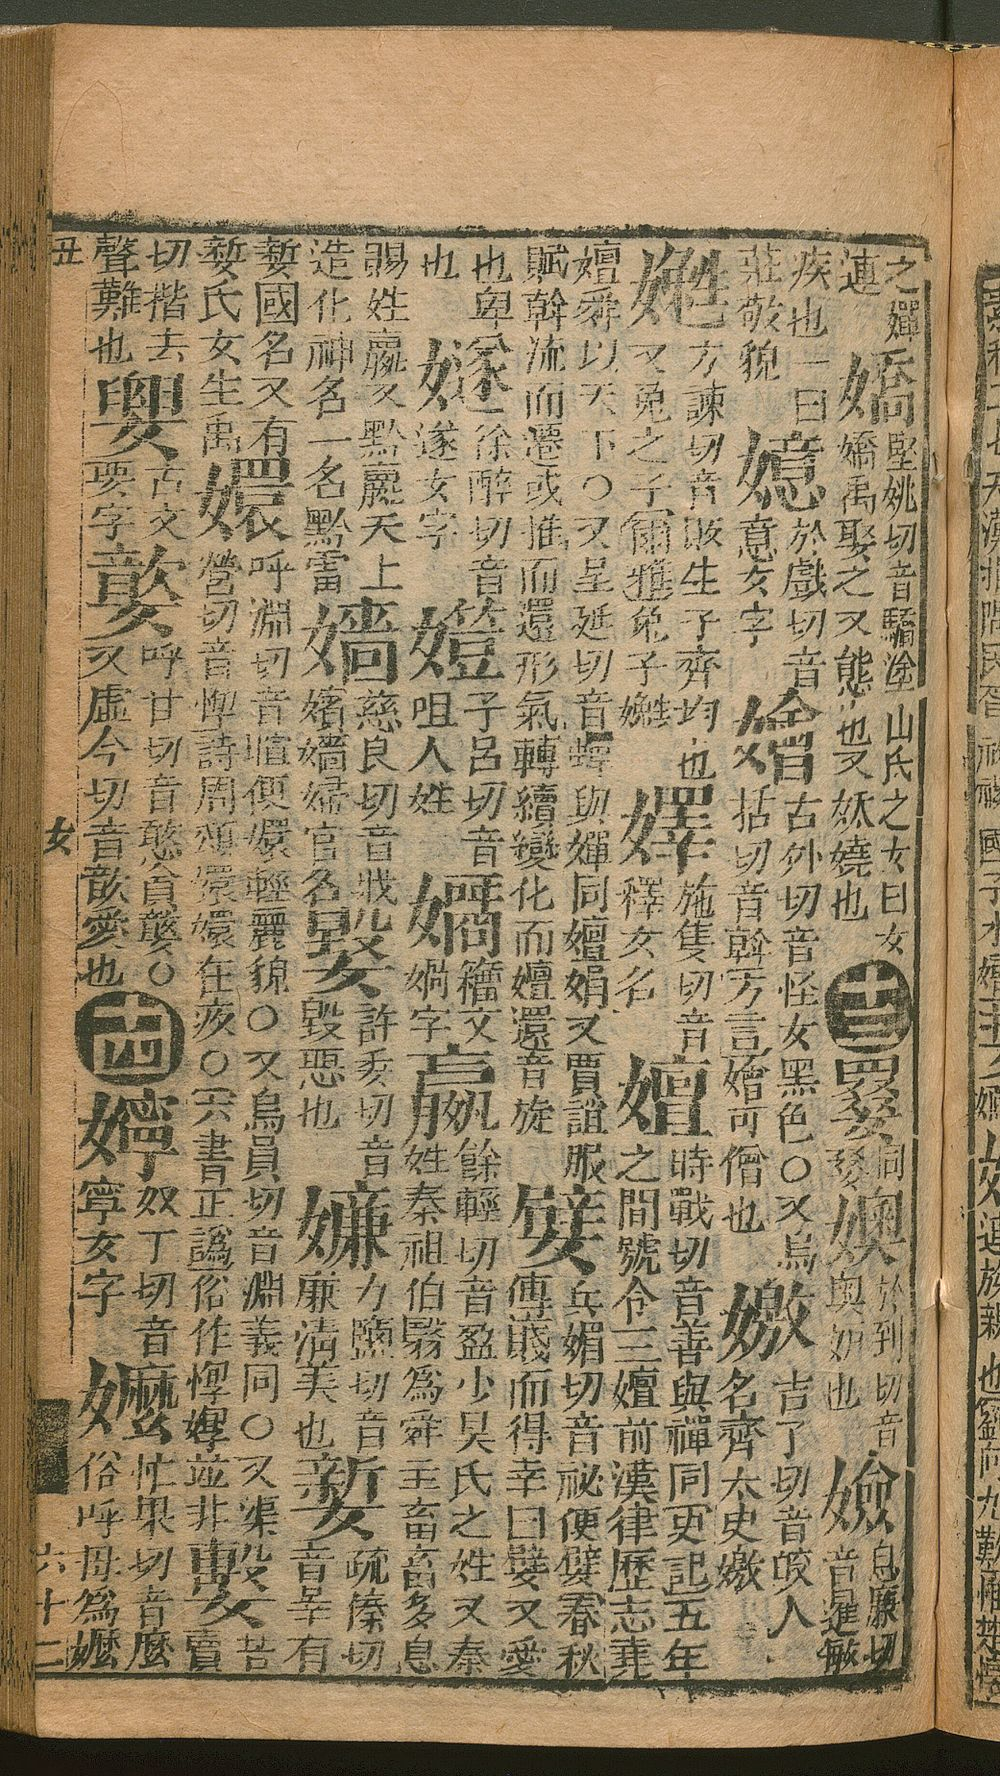 之嬋
連
嬌
堅姚切音驕塗山氏之女曰女
嬌禹娶之又態也又妖嬈也
十三
同
於到切音
奧妒也
嬐
息廉切
音暹敏
疾也一曰
莊敬貌
嬑
於戲切音
意女字
嬒
古外切音怪女黑色○又烏
括切音斡方言嬒可憎也
嬓
吉了切音皎人
名齊太史嬓
嬎
方諫切音販生子齊均也
又兔之子爾雅兔子嬎
嬕
施隻切音
釋女名
嬗
時戰切音善與禪同史記五年
之間號令三嬗前漢律歷志堯
嬗舜以天下○又呈延切音蟬與嬋同嬗娟又賈誼服
賦斡流而遷或推而還形氣轉續變化而嬗還音旋
嬖
兵媚切音祕便嬖春秋
傳賤而得幸曰嬖又愛
也卑
也
嬘
徐醉切音
遂女字
子呂切音
咀人姓
籀文
字
嬴
餘輕切音盈少昊氏之姓又秦
姓秦祖伯翳為舜主畜畜多息
賜姓嬴又黔嬴天上
造化神名一名黔雷
嬙
慈良切音戕
嬪嬙婦官名
許委切音
毀惡也
嬚
力鹽切音
廉清美也
㜪
疏臻切
音莘有
㜪國名又有
㜪氏女生禹
嬛
呼淵切音暄便嬛輕麗貌○又烏員切音淵義同○又渠
營切音惸詩周頌嬛嬛在疚○六書正譌俗作惸並非
苦
賣
切揩去
聲難也
古文
要字
呼甘切音憨貪○
又虛今切音歆愛也
十四
嬣
奴丁切音
寧女字
嬤
忙果切音麼
俗呼母為嬤
丑
女
六十二